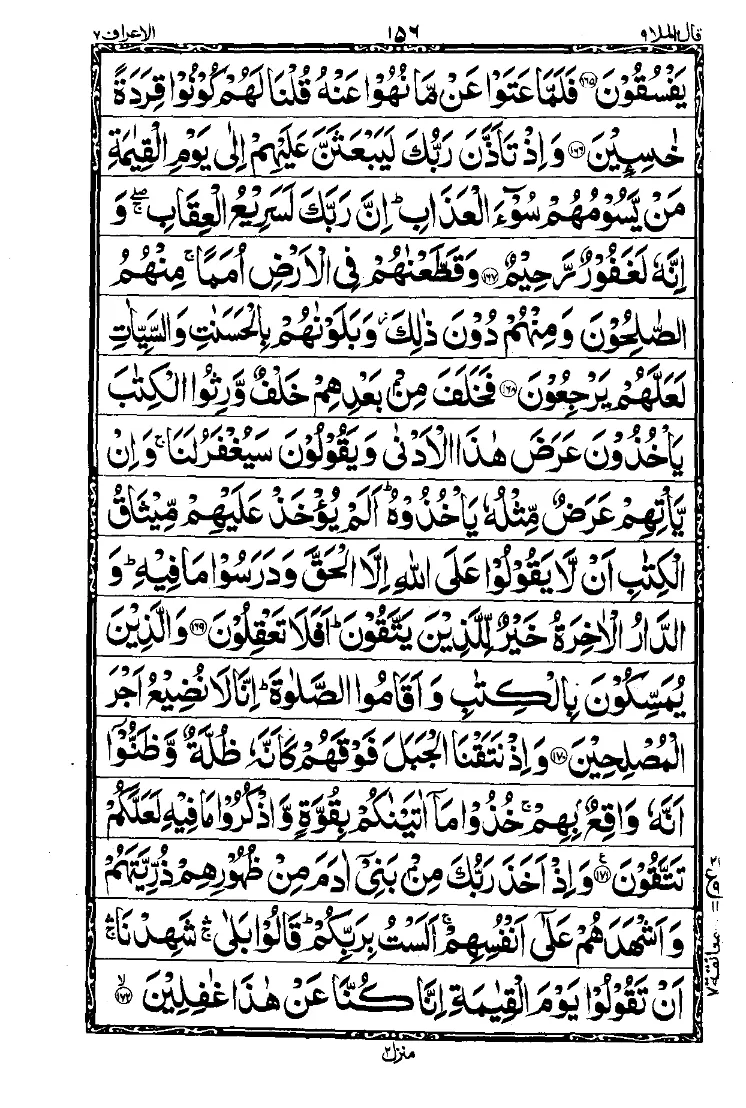 قال الملا ٩ ١٥٦ الاعراف ٧
يَفْسُقُوْنَ ﴿١٦٥﴾ فَلَمَّا عَتَوْا عَنْ مَّا نُهُوْا عَنْهُ قُلْنَا لَهُمْ كُوْنُوْا قِرَدَةً
خٰسِـِٕيْنَ ﴿١٦٦﴾ وَاِذْ تَاَذَّنَ رَبُّكَ لَيَبْعَثَنَّ عَلَيْهِمْ اِلٰى يَوْمِ الْقِيٰمَةِ
مَنْ يَّسُوْمُهُمْ سُوْٓءَ الْعَذَابِ ؕ اِنَّ رَبَّكَ لَسَرِيْعُ الْعِقَابِ ۖۚ وَ
اِنَّهٗ لَغَفُوْرٌ رَّحِيْمٌ ﴿١٦٧﴾ وَقَطَّعْنٰهُمْ فِى الْاَرْضِ اُمَمًا ۚ مِنْهُمُ
الصّٰلِحُوْنَ وَمِنْهُمْ دُوْنَ ذٰلِكَ ؗ وَبَلَوْنٰهُمْ بِالْحَسَنٰتِ وَالسَّيِّاٰتِ
لَعَلَّهُمْ يَرْجِعُوْنَ ﴿١٦٨﴾ فَخَلَفَ مِنْۢ بَعْدِهِمْ خَلْفٌ وَّرِثُوا الْكِتٰبَ
يَاْخُذُوْنَ عَرَضَ هٰذَا الْاَدْنٰى وَيَقُوْلُوْنَ سَيُغْفَرُ لَنَا ۚ وَاِنْ
يَّاْتِهِمْ عَرَضٌ مِّثْلُهٗ يَاْخُذُوْهُ ؕ اَلَمْ يُؤْخَذْ عَلَيْهِمْ مِّيْثَاقُ
الْكِتٰبِ اَنْ لَّا يَقُوْلُوْا عَلَى اللّٰهِ اِلَّا الْحَقَّ وَدَرَسُوْا مَا فِيْهِ ؕ وَ
الدَّارُ الْاٰخِرَةُ خَيْرٌ لِّلَّذِيْنَ يَتَّقُوْنَ ؕ اَفَلَا تَعْقِلُوْنَ ﴿١٦٩﴾ وَالَّذِيْنَ
يُمَسِّكُوْنَ بِالْكِتٰبِ وَاَقَامُوا الصَّلٰوةَ ؕ اِنَّا لَا نُضِيْعُ اَجْرَ
الْمُصْلِحِيْنَ ﴿١٧٠﴾ وَاِذْ نَتَقْنَا الْجَبَلَ فَوْقَهُمْ كَاَنَّهٗ ظُلَّةٌ وَّظَنُّوْۤا
اَنَّهٗ وَاقِعٌۢ بِهِمْ ۚ خُذُوْا مَاۤ اٰتَيْنٰكُمْ بِقُوَّةٍ وَّاذْكُرُوْا مَا فِيْهِ لَعَلَّكُمْ
تَتَّقُوْنَ ﴿١٧١﴾ وَاِذْ اَخَذَ رَبُّكَ مِنْۢ بَنِىْۤ اٰدَمَ مِنْ ظُهُوْرِهِمْ ذُرِّيَّتَهُمْ
وَاَشْهَدَهُمْ عَلٰٓى اَنْفُسِهِمْ ۚ اَلَسْتُ بِرَبِّكُمْ ؕ قَالُوْا بَلٰى ۛۚ شَهِدْنَا ۛۚ
اَنْ تَقُوْلُوْا يَوْمَ الْقِيٰمَةِ اِنَّا كُنَّا عَنْ هٰذَا غٰفِلِيْنَ ﴿١٧٢﴾
معانقة ٧
منزل ٢